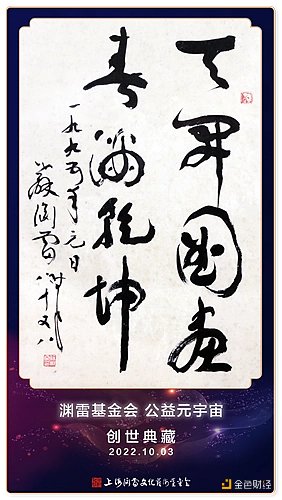 天開圖畫
春滿乾坤
一九九五年元日
蘇淵雷
渊雷基金会 公益元宇宙
创世典藏
2022.10.03
上海渊雷文化艺术基金会
金色财经